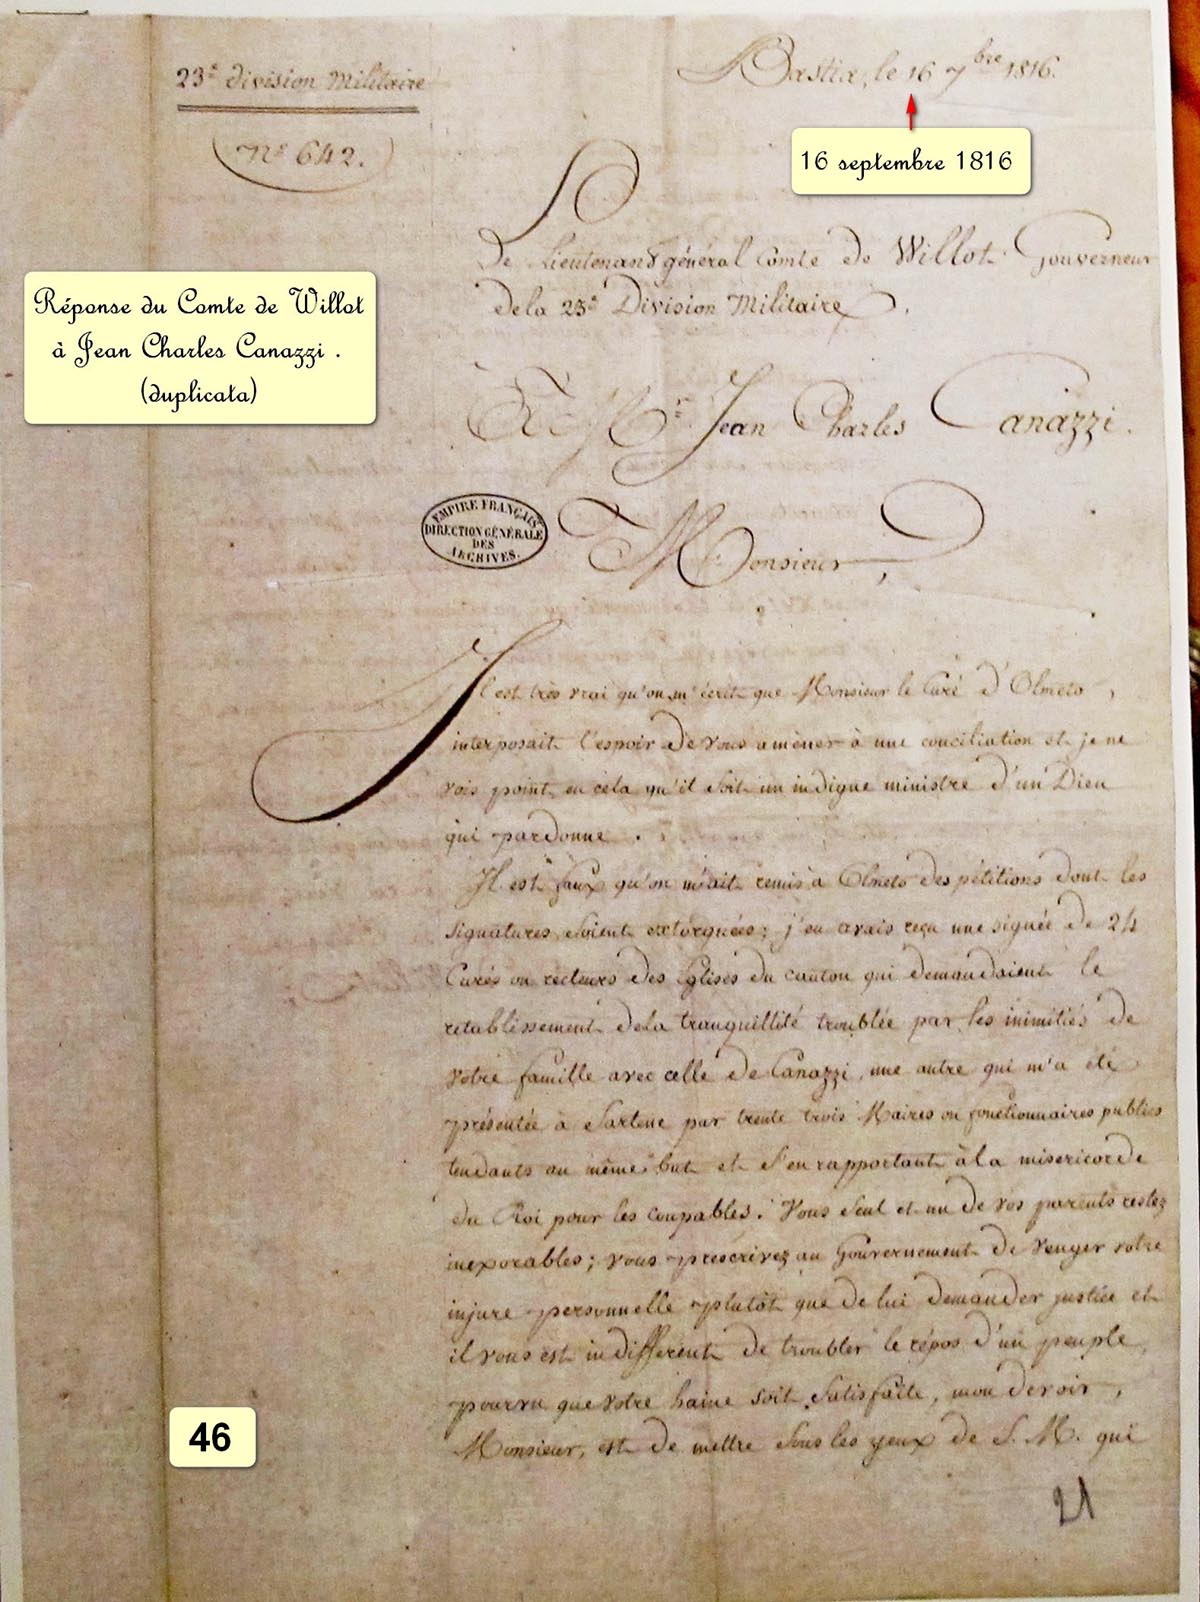 23e Division Militaire
Bastia, le 16 7bre 1816.
N° 642.
16 septembre 1816
Le Lieutenant général Comte de Willot Gouverneur
de la 23e Division Militaire.
Réponse du Comte de Willot
à Jean Charles Canazzi .
(duplicata)
À Mr Jean Charles Canazzi.
EMPIRE FRANÇAIS
DIRECTION GÉNÉRALE
DES
ARCHIVES.
Monsieur,
Il est très vrai qu'on m'écrit que Monsieur le Curé d'Olmeto,
interposait l'espoir de vous amèner à une conciliation et je ne
vois point en cela qu'il soit un indigne ministre d'un Dieu
qui pardonne .
Il est faux qu'on m'ait remis à Olmeto des pétitions dont les
signatures soient extorquées; j'en avais reçu une signée de 24
Curés ou recteurs des Eglises du canton qui demandaient le
rétablissement de la tranquillité troublée par les inimitiés de
votre famille avec celle de Canazzi, une autre qui m'a été
présentée à Sartene par trente trois Maires ou fonctionnaires publics
tendants au même but et s'en rapportant à la misericorde
du Roi pour les coupables. Vous seul et un de vos parents restez
inexorables; vous prescrivez au Gouvernement de venger votre
injure personnelle plutôt que de lui demander justice et
il vous est indifférent de troubler le répos d'un peuple,
pourvu que votre haine soit satisfaite, mon devoir,
Monsieur, est de mettre sous les yeux de S. M. qui
46
21